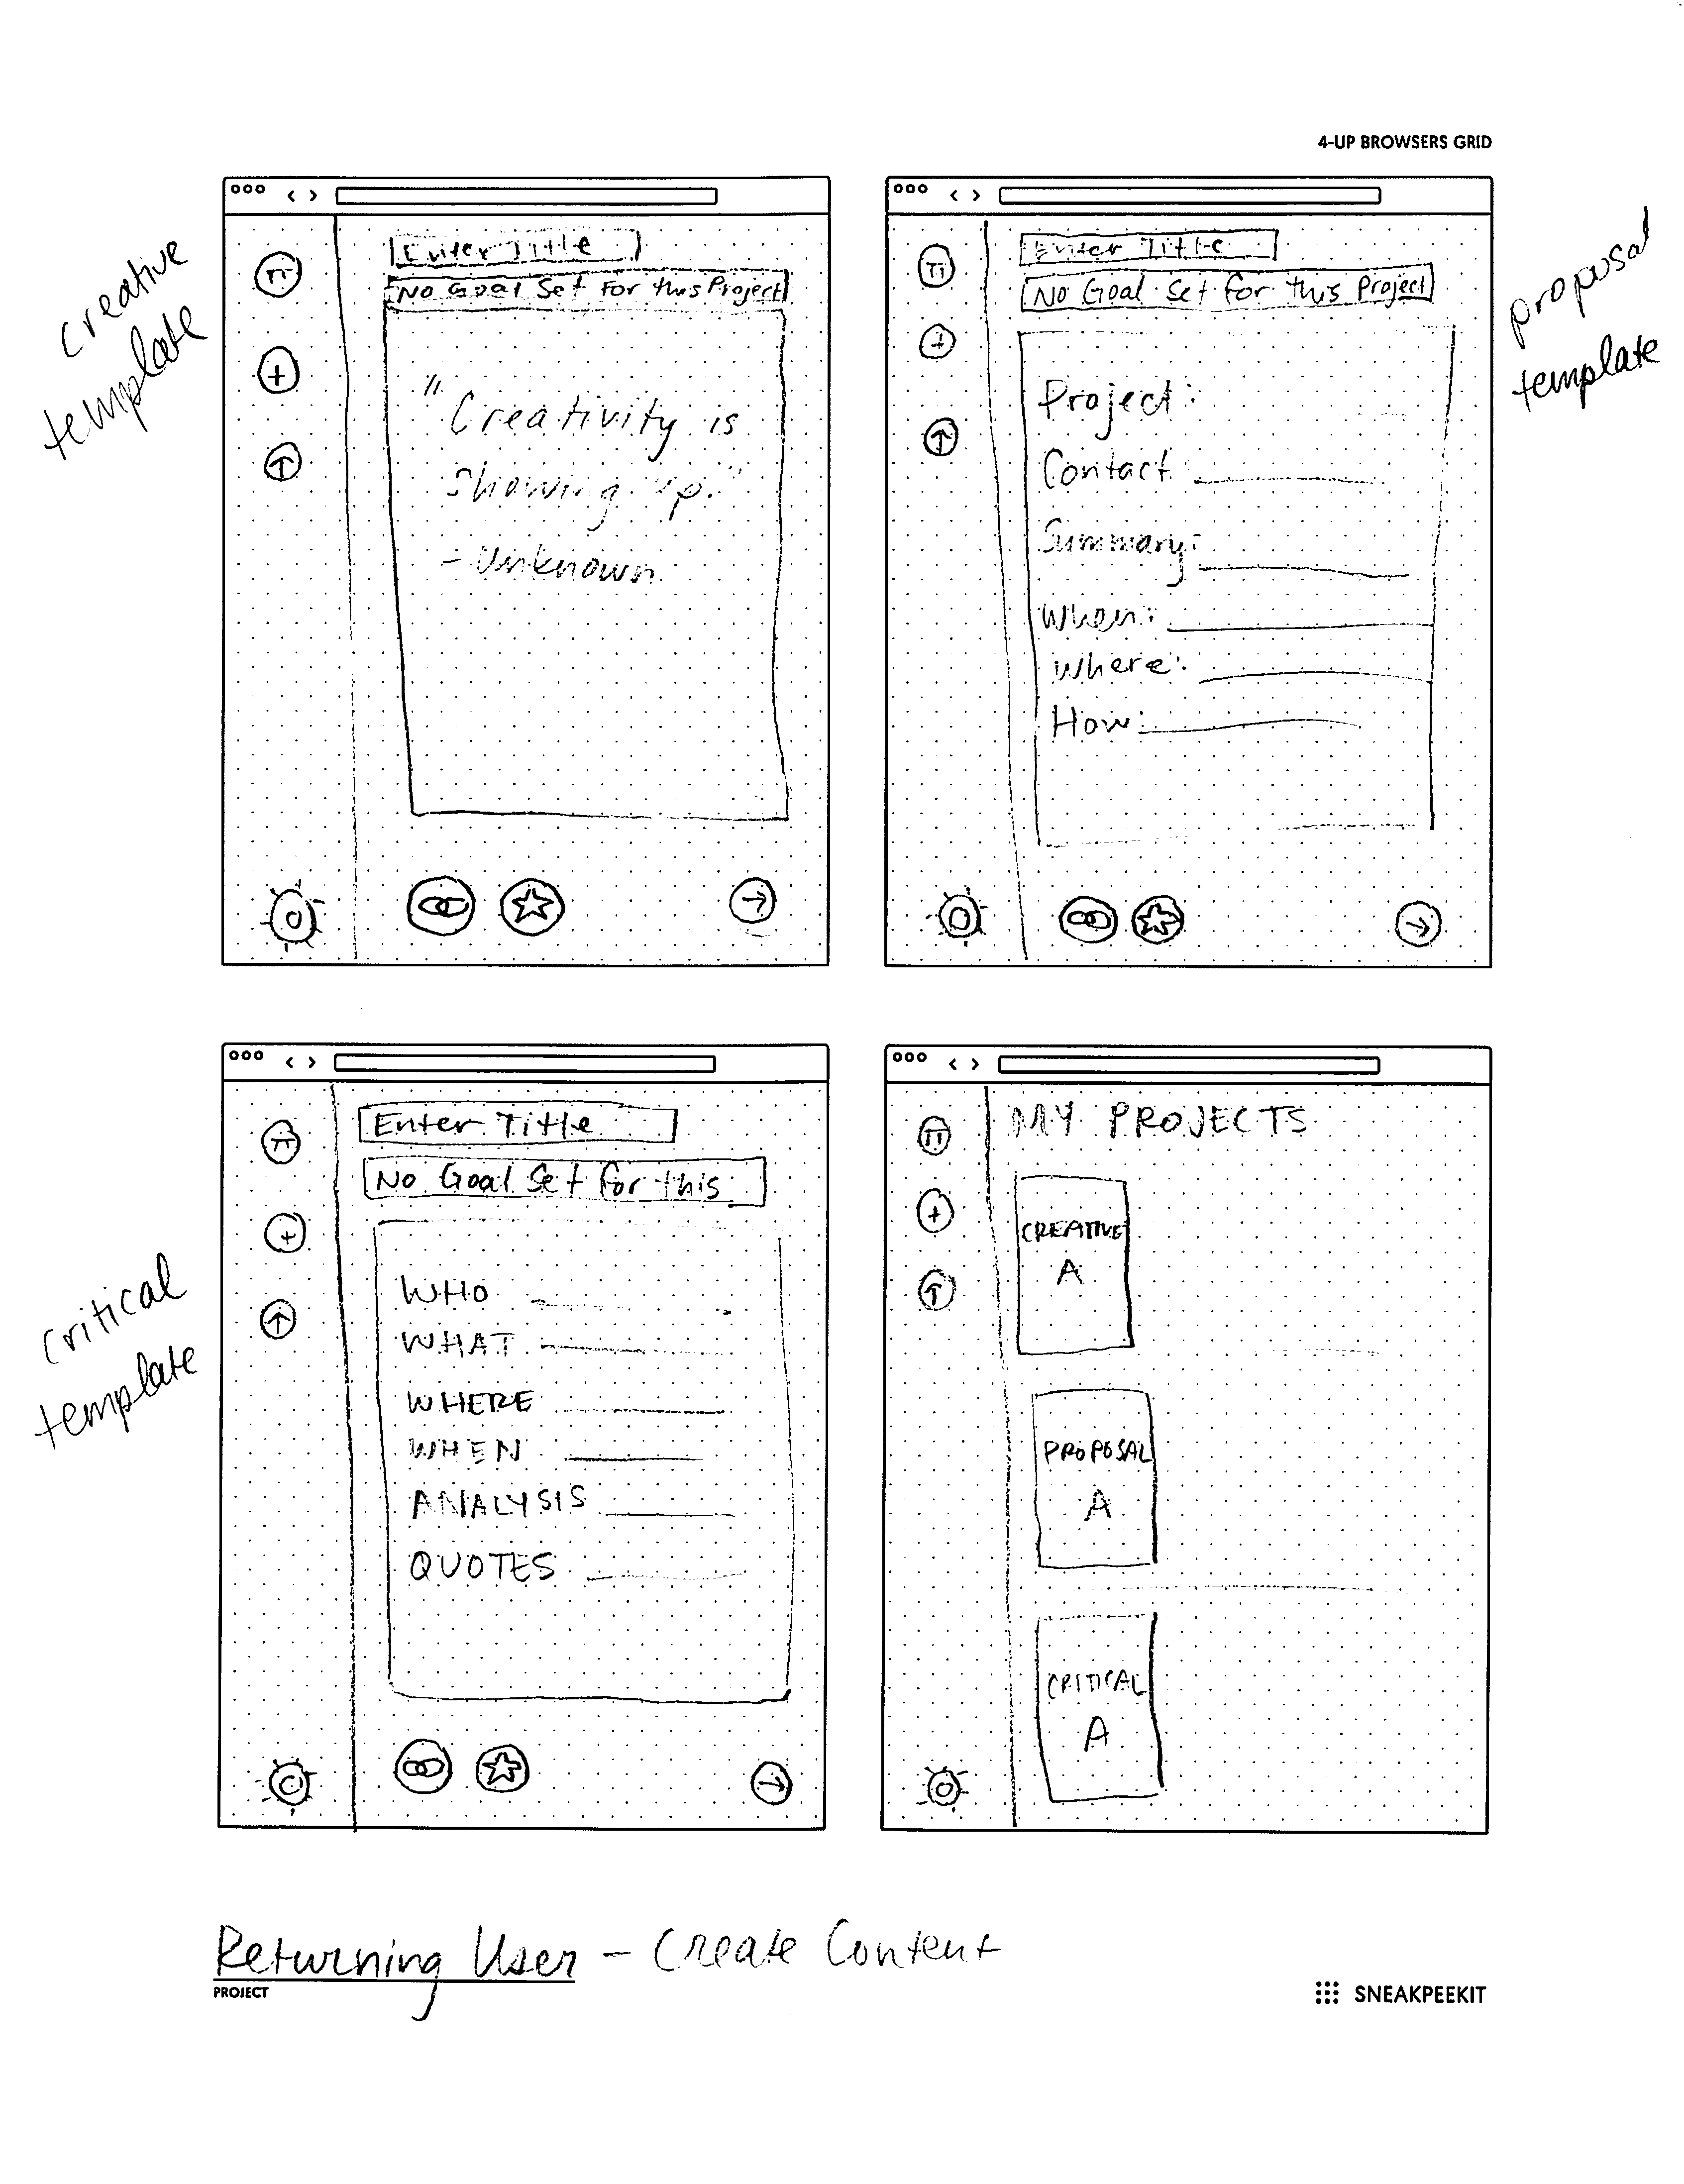 4-UP BROWSERS GRID
creative
template
Enter Title
No Goal Set For this Project
"Creativity is
showing up."
- Unknown
proposal
template
Enter Title
No Goal Set for this Project
Project:
Contact
Summary:
When:
Where:
How:
critical
template
Enter Title
No Goal Set for this
WHO
WHAT
WHERE
WHEN
ANALYSIS
QUOTES
MY PROJECTS
CREATIVE
A
PROPOSAL
A
CRITICAL
A
Returning User - Create Content
PROJECT
SNEAKPEEKIT